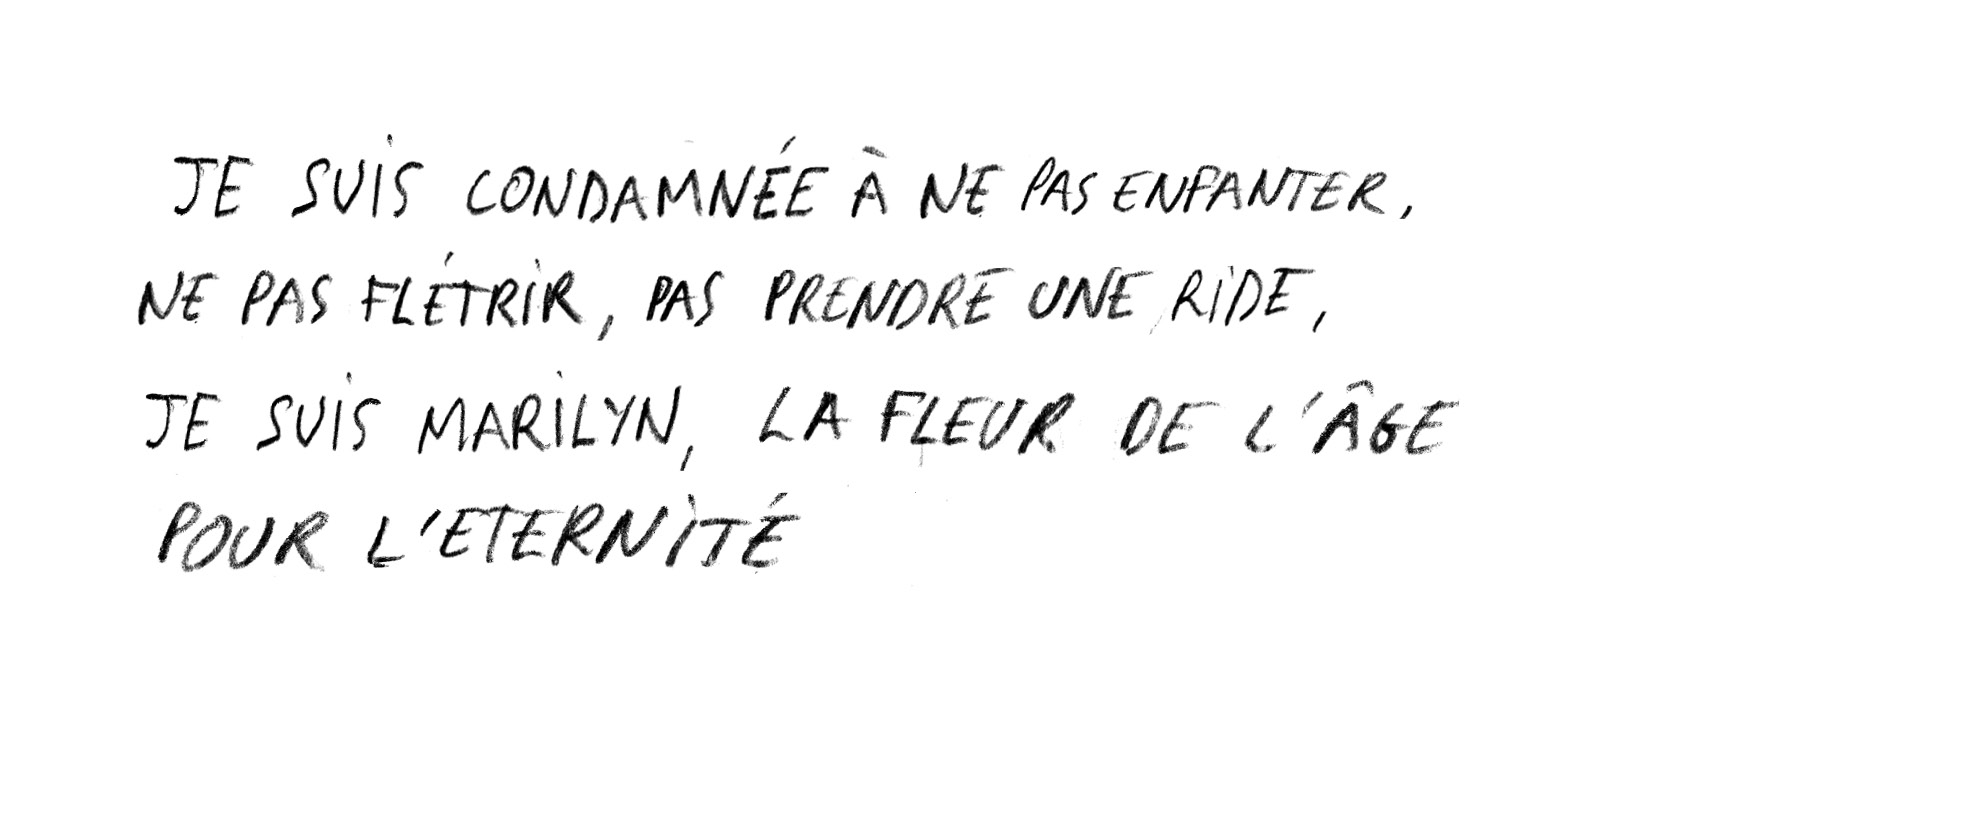 JE SUIS CONDAMNÉE À NE PAS ENFANTER,
NE PAS FLÉTRIR, PAS PRENDRE UNE RIDE,
JE SUIS MARILYN, LA FLEUR DE L'ÂGE
POUR L'ETERNITÉ